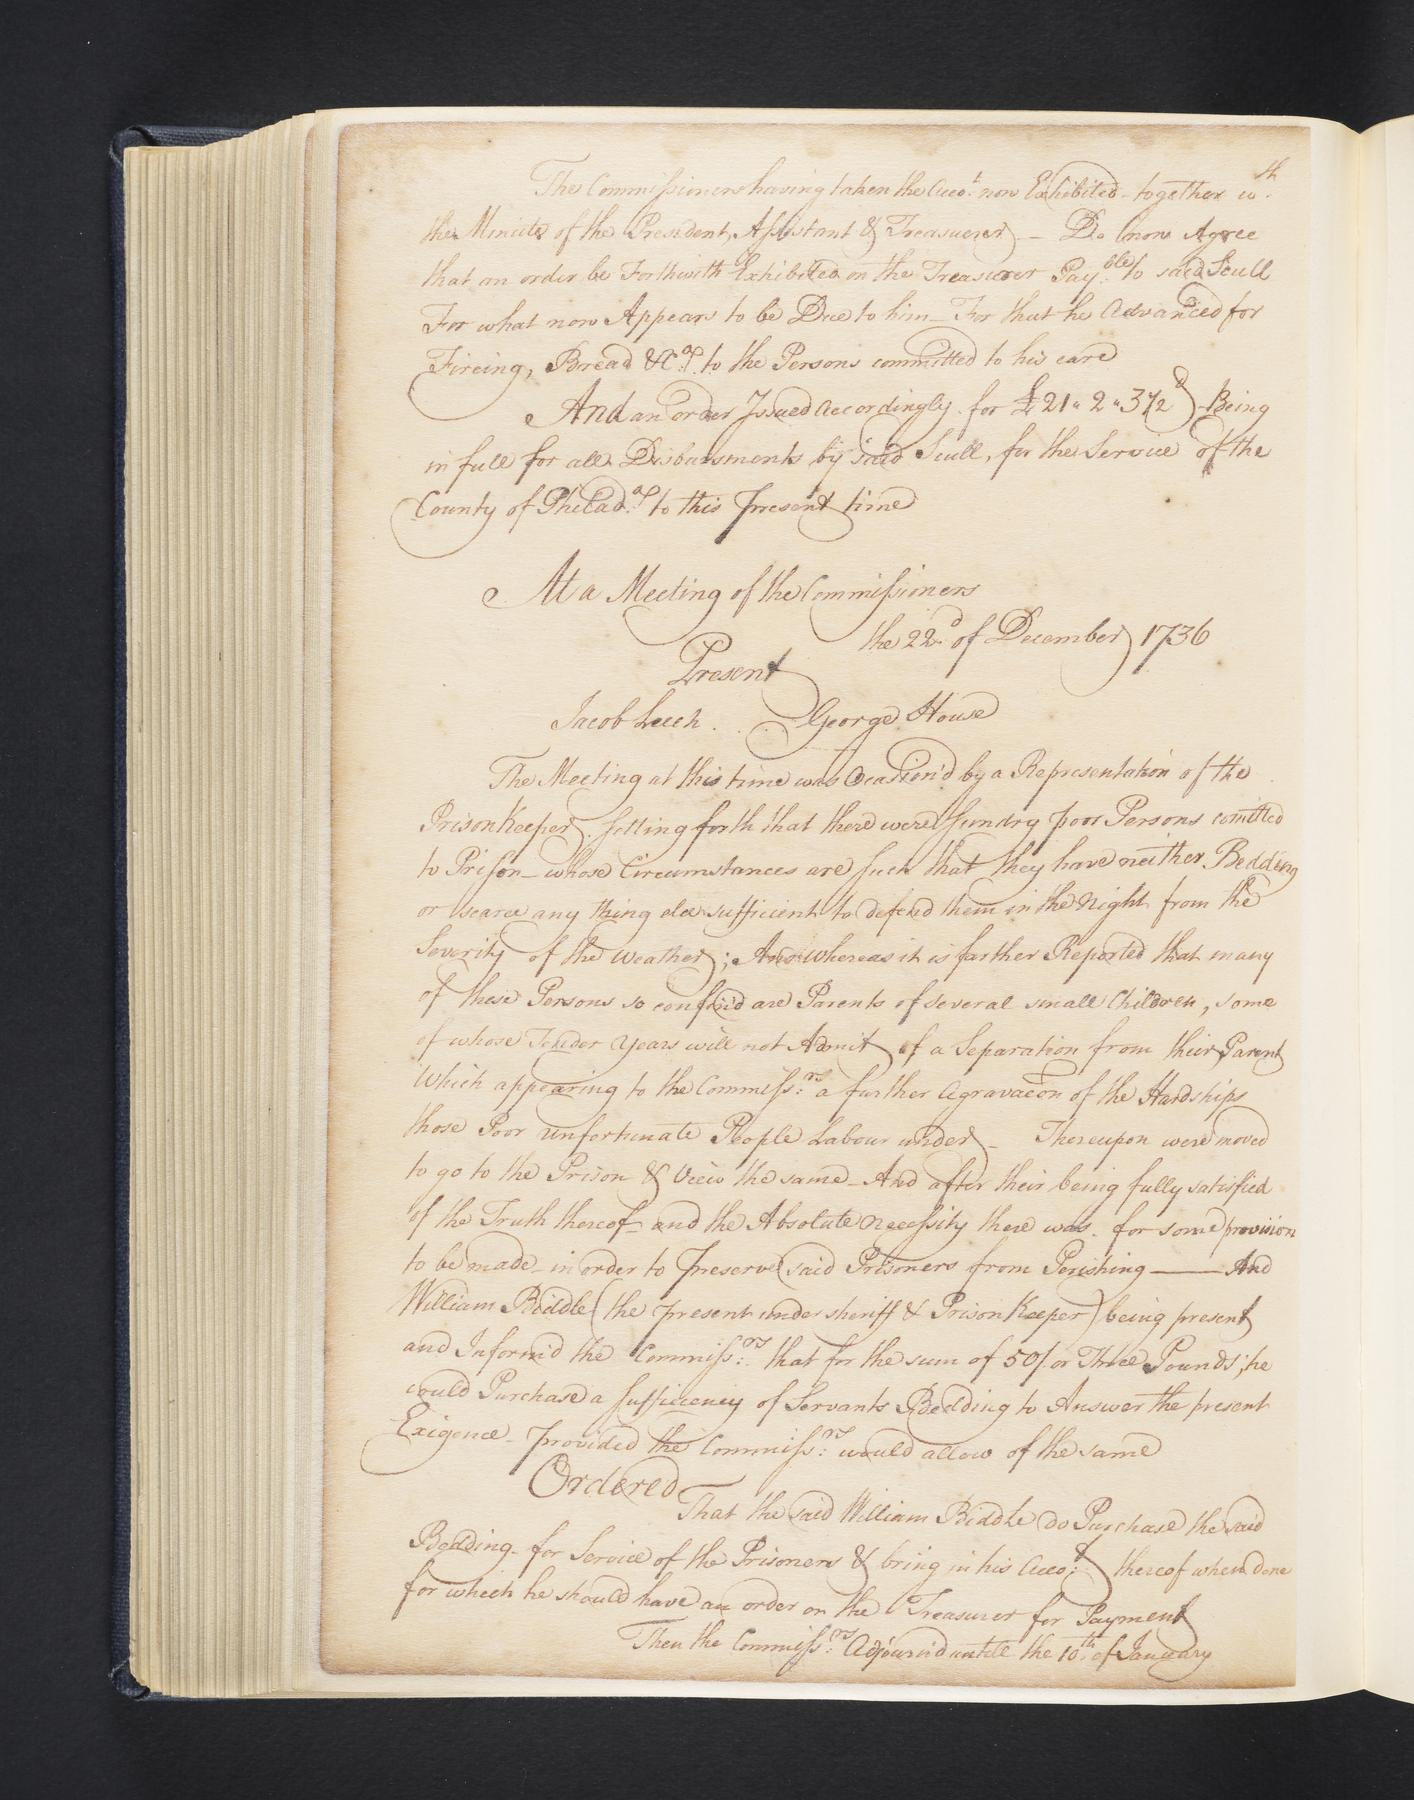 The Commissioners having taken the Acco.t now Exhibited - together w.th
the Minute of the President, Assistant & Treasuerer) - Do now Agree
that an order be Forthwith Exhibited on the Treasurer Pay.ble to said Scull
For what now Appears to be Due to him - For that he Advanced for
Fireing, Bread &C.a to the Persons committed to his care
And an order Issued Accordingly for £21"2"3 1/2 d) Being
in full for all Disbursments by said Scull, for the Service of the
County of Philad.a to this Present time
At a Meeting of the Commissioners
the 22.d of December 1736
Present
Jacob Leech. George House
The Meeting at this time was Ocassion'd by a Representation of the
Prison Keeper. setting forth that there were sundry poor Persons comitted
to Prison - whose Circumstances are such that they have neither Bedding
or scarce any thing else sufficient to defend them in the Night from the
Severity of the Weather; And whereas it is farther Reported that many
of these Persons so confin'd are Parents of several small Children, some
of whose Tender Years will not Admit of a Separation from their Parent
Which appearing to the Commiss:rs a further Agravacon of the Hardships
those Poor unfortunate People Labour under - Thereupon were moved
to go to the Prison & View the same - And after their being fully satisfied
of the Truth thereof - and the Absolute Necessity there was for some provision
to be made - in order to Preserve said Prisoners from Perishing — And
William Biddle (the present under sheriff & Prison Keeper) being present
and Inform'd the Commiss:rs that for the sum of 50/ or Three Pounds; he
would Purchase a Sufficency of Servants Bedding to Answer the present
Exigence - provided the Commiss:rs would allow of the same
Ordered
That the said William Biddle do Purchase the said
Bedding - for Service of the Prisoners & bring in his Acco:t thereof when done
for which he should have an order on the Treasurer for Payment
Then the Commiss:rs Adjourn'd untill the 10th of January